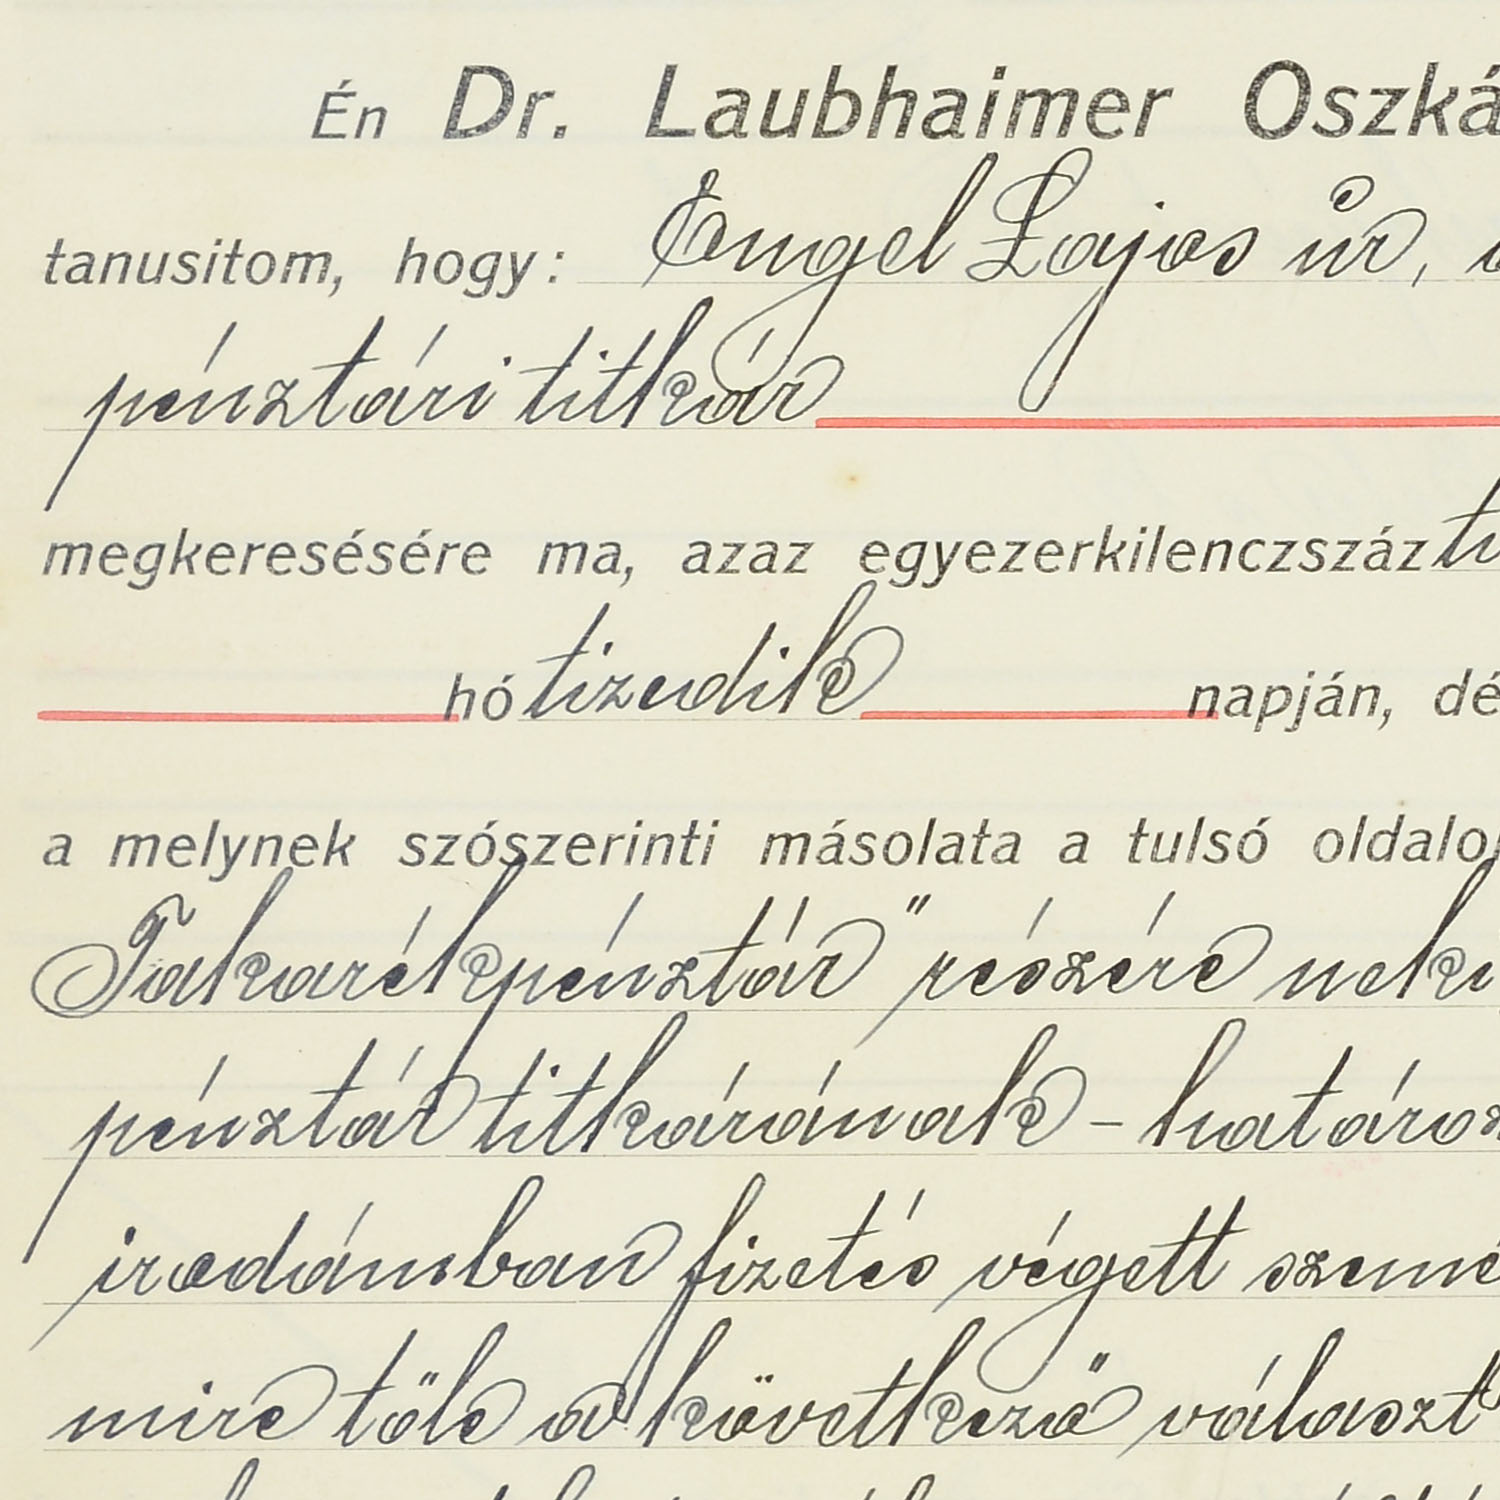 Én Dr. Laubhaimer Oszká
tanusitom, hogy: Engel Lajos úr, a
pénztári titkár
megkeresésére ma, azaz egyezerkilenczszáz ti
hó tizedik napján, dé
a melynek szószerinti másolata a tulsó oldalo
Takarékpénztár" részére neki
pénztár titkárának - határoz
irodámban fizetés végett szemé
mire tőle a következő választ